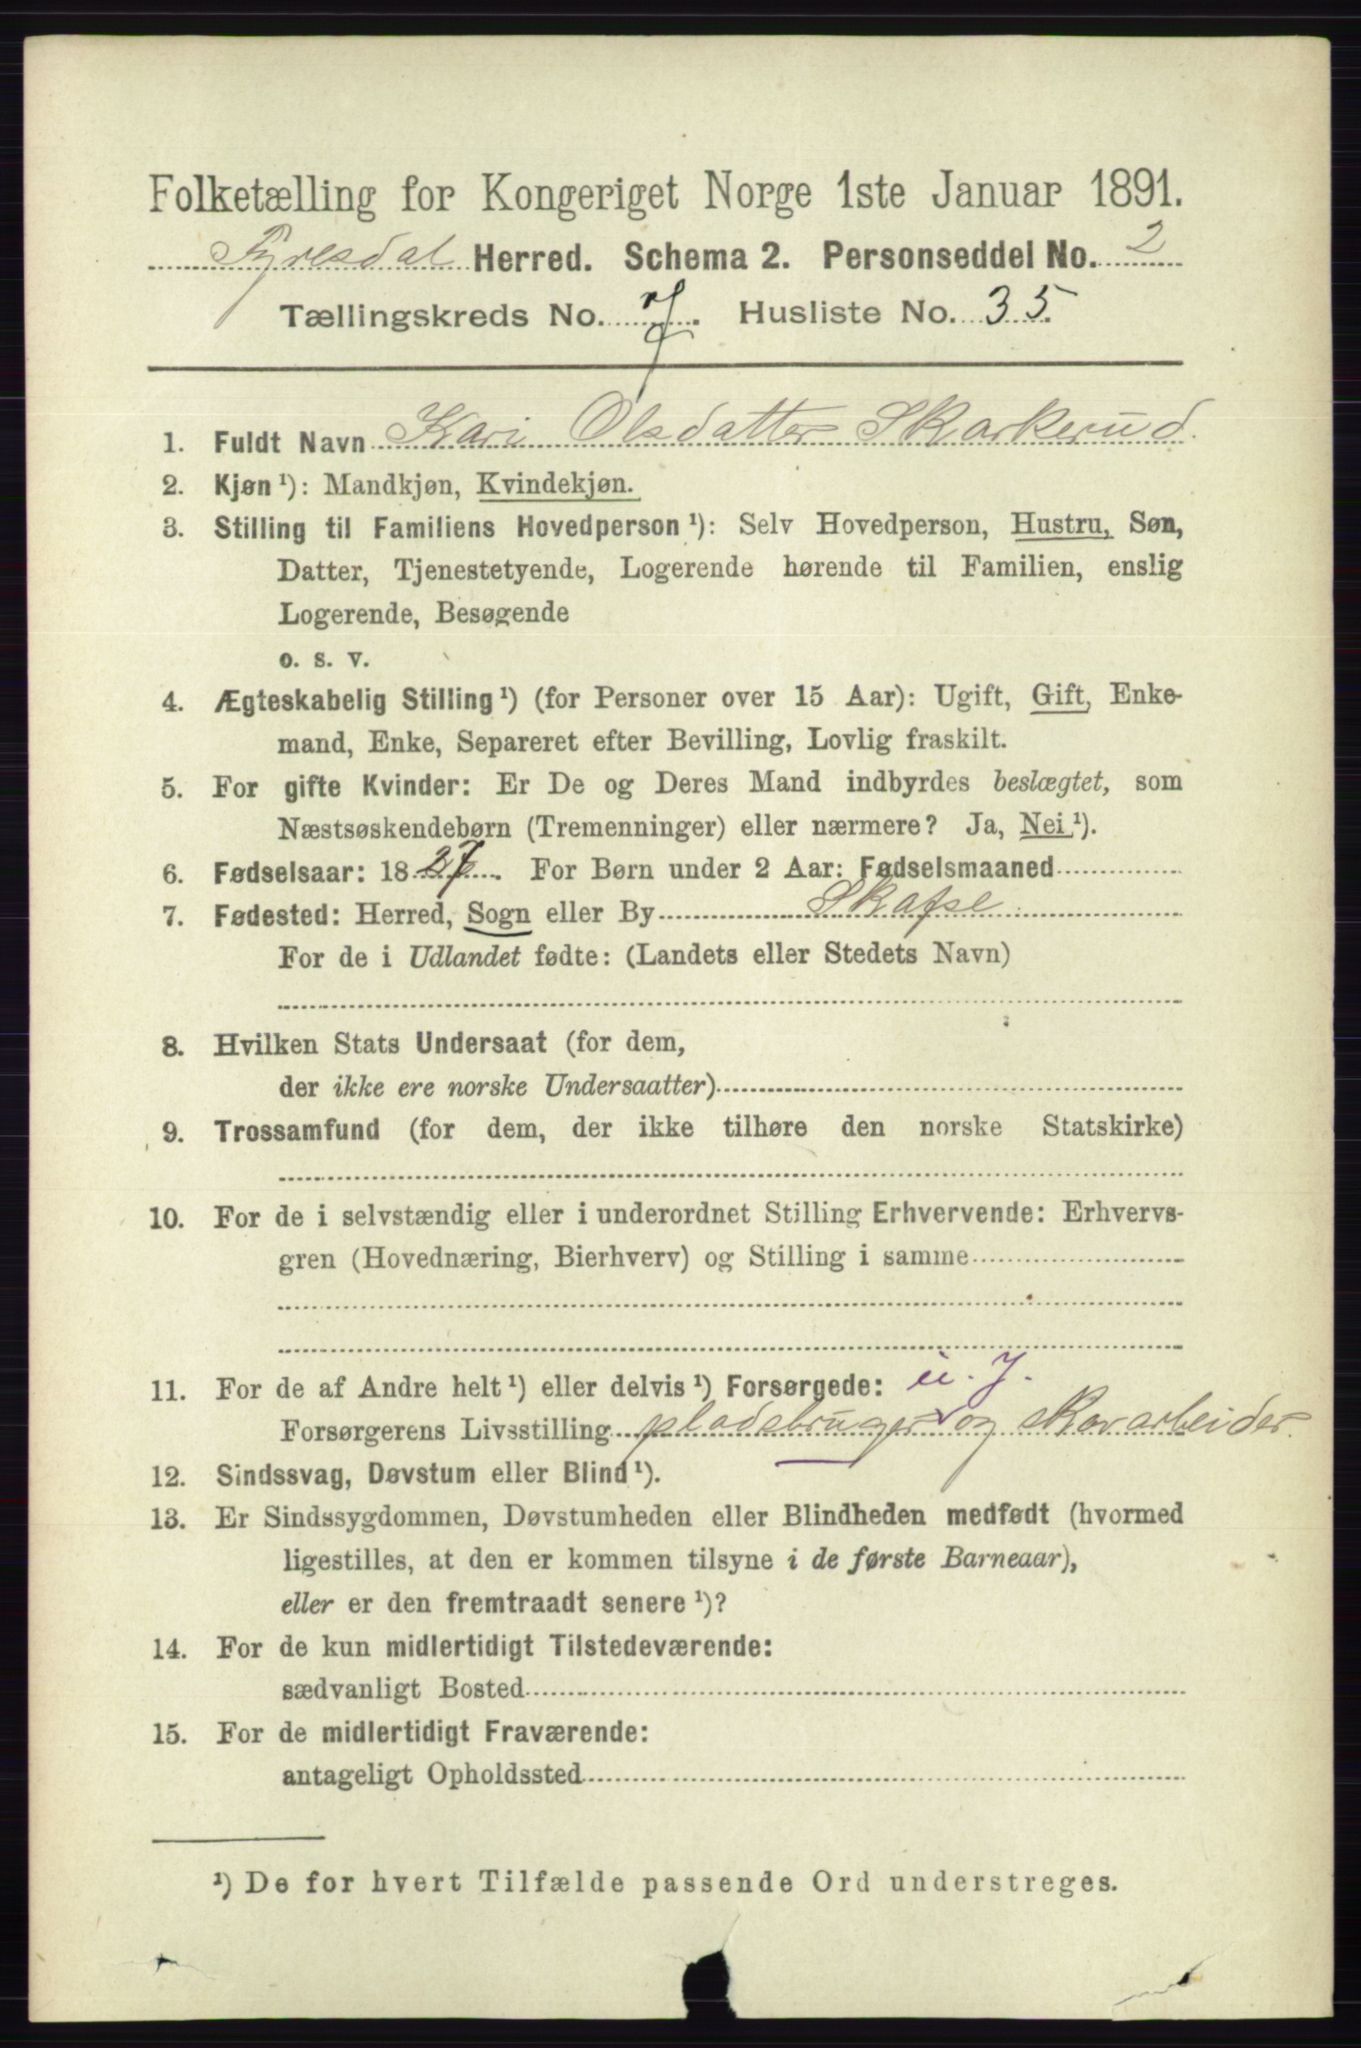 Folketælling for Kongeriget Norge 1ste Januar 1891.
Tyresdal Herred. Schema 2. Personseddel No. 2
Tællingskreds No. 7. Husliste No. 35.
1. Fuldt Navn Kari Olsdatter Skarkerud.
2. Kjøn ¹): Mandkjøn, Kvindekjøn.
3. Stilling til Familiens Hovedperson ¹): Selv Hovedperson, Hustru, Søn,
Datter, Tjenestetyende, Logerende hørende til Familien, enslig
Logerende, Besøgende
o. s. v.
4. Ægteskabelig Stilling ¹) (for Personer over 15 Aar): Ugift, Gift, Enke-
mand, Enke, Separeret efter Bevilling, Lovlig fraskilt.
5. For gifte Kvinder: Er De og Deres Mand indbyrdes beslægtet, som
Næstsøskendebørn (Tremenninger) eller nærmere? Ja, Nei ¹).
6. Fødselsaar: 1827. For Børn under 2 Aar: Fødselsmaaned
7. Fødested: Herred, Sogn eller By Skafse
For de i Udlandet fødte: (Landets eller Stedets Navn)
8. Hvilken Stats Undersaat (for dem,
der ikke ere norske Undersaatter)
9. Trossamfund (for dem, der ikke tilhøre den norske Statskirke)
10. For de i selvstændig eller i underordnet Stilling Erhvervende: Erhvervs-
gren (Hovednæring, Bierhverv) og Stilling i samme
11. For de af Andre helt ¹) eller delvis ¹) Forsørgede: u. J.
Forsørgerens Livsstilling pladsbruger og skovarbeider.
12. Sindssvag, Døvstum eller Blind ¹).
13. Er Sindssygdommen, Døvstumheden eller Blindheden medfødt (hvormed
ligestilles, at den er kommen tilsyne i de første Barneaar),
eller er den fremtraadt senere ¹)?
14. For de kun midlertidigt Tilstedeværende:
sædvanligt Bosted
15. For de midlertidigt Fraværende:
antageligt Opholdssted
¹) De for hvert Tilfælde passende Ord understreges.